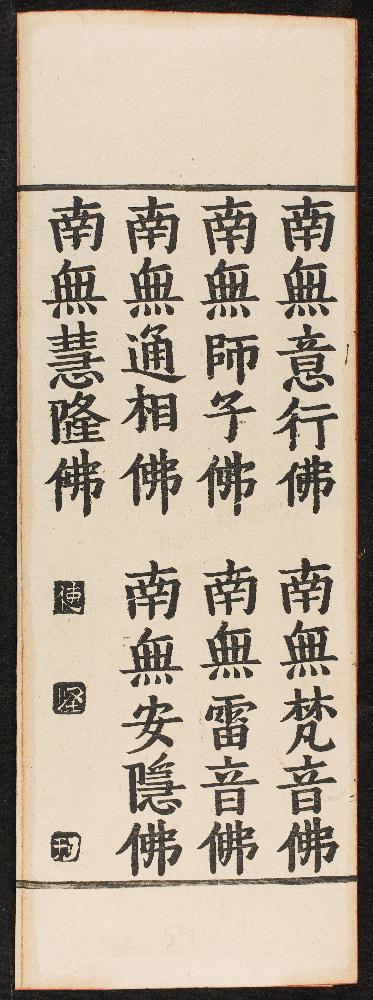 南無意行佛 南無梵音佛
南無師子佛 南無雷音佛
南無通相佛 南無安隱佛
南無慧隆佛
刊